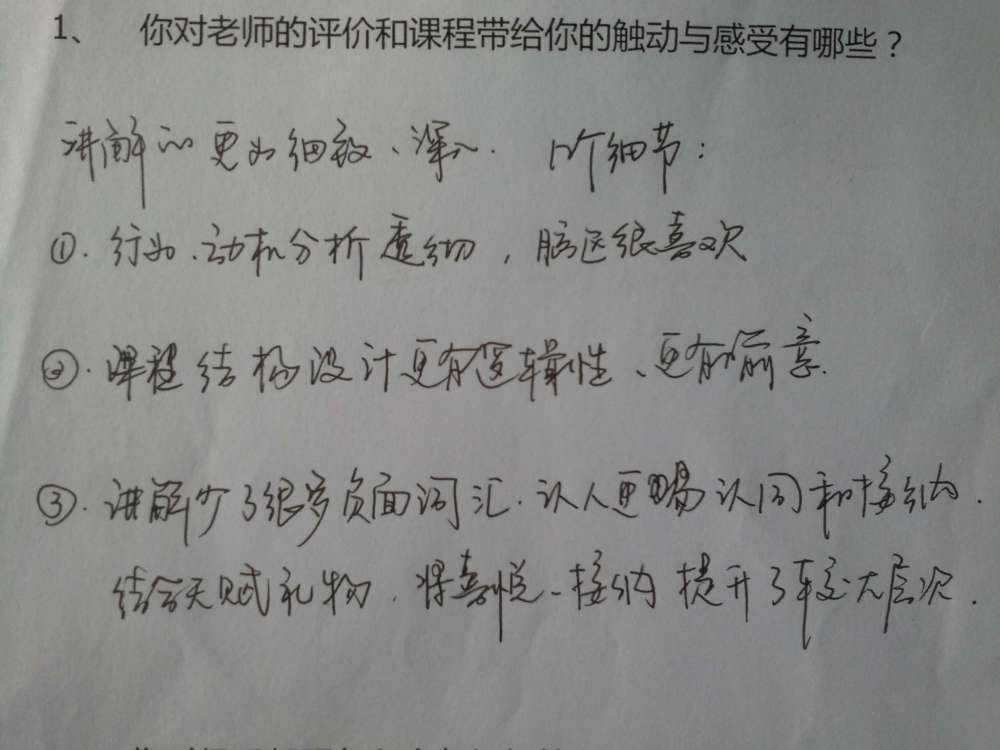 1、 你对老师的评价和课程带给你的触动与感受有哪些？
讲解的更为细致、深入. 几个细节：
①. 行为、动机分析透彻，脑区很喜欢
②. 课程结构设计更有逻辑性、更有前意.
③. 讲解少了很多负面词汇.认人更易认同和接纳.
结合天赋礼物，将喜悦、接纳提升了较大层次.